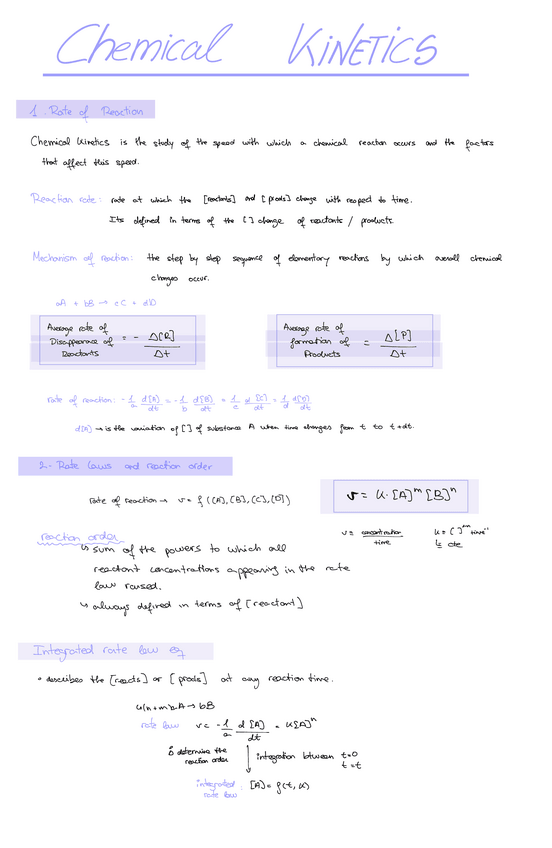 Chemical KINETICS
1. Rate of Reaction
Chemical Kinetics is the study of the speed with which a chemical reaction occurs and the factors
that affect this speed.
Reaction rate: rate at which the [reactants] and [prods] change with respect to time.
Its defined in terms of the [ ] change of reactants / products
Mechanism of reaction: the step by step sequence of elementary reactions by which overall chemical
changes occur.
aA + bB → cC + dD
Average rate of
Disappearance of = - Δ[R]/Δt
Reactants
Average rate of
formation of = Δ[P]/Δt
Products
rate of reaction: -1/a d[A]/dt = -1/b d[B]/dt = 1/c d[C]/dt = 1/d d[D]/dt
d[A] → is the variation of [ ] of substance A when time changes from t to t+dt.
2.- Rate laws and reaction order
rate of reaction → v = f ([A],[B],[C],[D])
v = k·[A]^m [B]^n
v = concentration/time
reaction order
↳ sum of the powers to which all
reactant concentrations appearing in the rate
law raised.
↳ always defined in terms of [reactant]
Integrated rate law eq
• describes the [reacts] or [prods] at any reaction time.
A → bB
rate law v = -1/a d[A]/dt = k[A]^n
determine the
reaction order
integration between t=0
t=t
integrated
rate law : [A] = f(t, k)